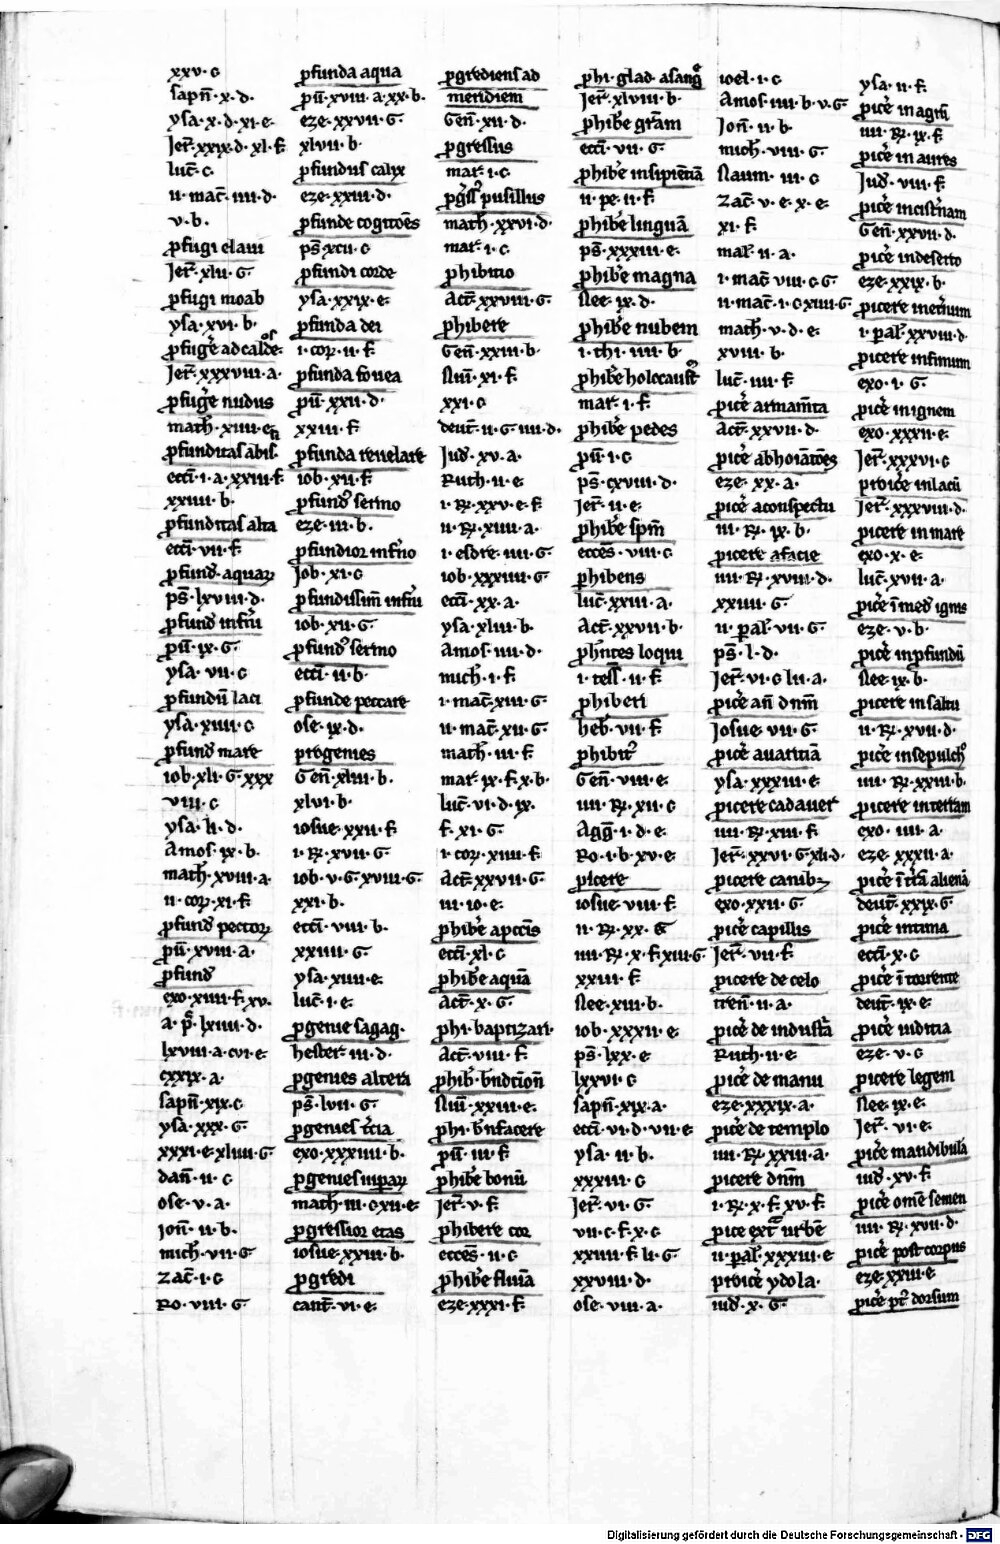 xxv· c
sapn̄· x· d·
ysa· x· d· xi· e·
Jer̄· xxix· d· xl· f
luc̄· c
ii· mac̄· iiii· d·
v· b·
ꝓfugi elaui
Jer̄· xlii· G·
ꝓfugi moab
ysa· xvi· b·
ꝓfuḡe ad caldeos
Jer̄· xxxviii· a·
ꝓfuḡe nudus
math̄· xiiii· e
ꝓfunditas abiss
ecc̄i· i· a· xxiiii· f
xxiiii· b·
ꝓfunditas alta
ecc̄i· vii· f·
ꝓfund· aquaꝝ
ps̄· lxviii· d·
ꝓfund infn̄i
pū· ix· G·
ysa· vii· c
ꝓfundū laci
ysa· xiiii· c
ꝓfund mare
iob· xli· G· xxx
viii· c
ysa· li· d·
Amos· ix· b·
math̄· xviii· a·
ii· coꝝ· xi· f·
ꝓfund pectoꝝ
pū· xviii· a·
ꝓfund
exo· xiiii· f· xv·
a· p̄· lxiiii· d·
lxviii· a· cvi· e
cxxix· a·
sapn̄· xix· c
ysa· xxx· G·
xxxi· e· xliiii· G·
dan̄· ii· c
ose· v· a·
jon̄· ii· b·
mich̄· vii· G
zac̄· i· c
Ro· viii· G
ꝓfunda aqua
pū· xviii· a· xx· b·
eze· xxvii· G·
xlvii· b·
ꝓfundus calix
eze· xxiii· d·
ꝓfunde cogitōes
ps̄· xcii· c
ꝓfundi corde
ysa· xxix· e·
ꝓfunda dei
i· coꝝ· ii· f·
ꝓfunda fouea
pū· xxii· d·
xxiii· f
ꝓfunda reuelare
iob· xii· f
ꝓfund̄ sermo
eze· iii· b·
ꝓfundior infn̄o
Job· xi· c
ꝓfundissim̄ infn̄i
iob· xii· G·
ꝓfund̄ sermo
ecc̄i· ii· b·
ꝓfunde peccare
ose· ix· d·
progenies
Gen̄· xliii· b·
xlvi· b·
iosue· xxii· f
i· R̄· xvii· G·
iob· v· G· xviii· G·
xxi· b·
ecc̄i· viii· b·
xxiiii· G·
ysa· xiiii· e·
luc̄· i· e·
ꝓgenie sagag·
hester· iii· d·
ꝓgenies altera
ps̄· lvii· G·
ꝓgenies t̄cia
exo· xxxiiii· b·
ꝓgenies uiꝑaꝝ
math̄ iii· c xii· e·
ꝓgressior etas
iosue· xxiii· b·
ꝓgredi
cant̄· vi· e·
ꝓgrediens ad
meridiem
Gen̄· xii· d·
ꝓgressus
mar̄· i· c
ꝓḡss̄ pusillus
math̄· xxvi· d·
mar̄· i· c
ꝓhibitio
Act̄· xxviii· G·
ꝓhibere
Gen̄· xxiii· b·
Nū· xi· f·
xxi· c
deut̄· ii· G· iiii· d·
Jud̄· xv· a·
Ruth· ii· e·
i· R̄· xxv· e· f·
ii· R̄· xiiii· a·
i· esdre· iiii· G
iob· xxxiiii· G·
ecc̄i· xx· a·
ysa· xliii· b·
Amos· iiii· d·
mich̄· i· f·
i· mac̄· xiii· G·
ii· mac̄· xii· G·
math̄· iii· f·
mar̄· ix· f· x· b·
luc̄· vi· d· ix·
f· xi· G·
i· coꝝ· xiiii· f·
Act̄· xxvii· G·
iii· io· e·
ꝓhib̄e ap̄cc̄is
ecc̄i· xl· c
ꝓhib̄e aquā
Act̄· x· G·
ꝓhi· baptizari·
Act̄· viii· f·
ꝓhib̄· bn̄dict̄ion̄
Nū· xxiii· e·
ꝓhi· bn̄facere
pū· iii· f
ꝓhib̄e bonū
Jer̄· v· f·
ꝓhibere cor
ecces̄· ii· c
ꝓhib̄e fluuiā
eze· xxxi· f·
ꝓhi· glad· a sang̃
Jer̄· xlviii· b·
ꝓhib̄e gr̄am
ecc̄i· vii· G·
ꝓhib̄e insipien̄ciā
ii· pe· ii· f
ꝓhib̄e linguā
ps̄· xxxiii· e·
ꝓhib̄e magna
Nee· ix· d·
ꝓhib̄e nubem
i· thi· iiii· b·
ꝓhib̄e holocaust̄
mar̄· i· f·
ꝓhib̄e pedes
pū· i· c
ps̄· cxviii· d·
Jer̄· ii· e·
ꝓhib̄e sp̄m
ecces̄· viii· c
ꝓhibens
luc̄· xxiii· a·
Act̄· xxvii· b·
ꝓhn̄tes loqui
i· tess̄· ii· f·
ꝓhiberi
heb̄· vii· f·
ꝓhibit̄
Gen̄· viii· e·
iiii· R̄· xii· c
Agḡ· i· d· e·
Ro· i· b· xv· e·
ꝓicere
iosue· viii· f·
ii· R̄· xx· G
iiii· R̄· x· f· xiii· G·
xxiii· f·
Nee· xiii· b·
iob· xxxii· e·
ps̄· lxx· e
lxxvi· c
sapn̄· xix· a·
ecc̄i· vi· d· vii· e·
ysa· ii· b·
xxxiii· c
Jer̄· vi· G·
vii· c· f· x· c
xxiiii· f· li· G·
xxviii· d·
ose· viii· a·
ioel· i· c
Amos· iiii· b· v· G·
Jon̄· ii· b·
mich̄· viii· G·
Naum· iii· c
zac̄· v· e· x· e·
xi· f·
mal̄· ii· a·
i· mac̄· viii· c· G·
ii· mac̄· i· c xiiii· G·
math̄· v· d· e·
xviii· b·
luc̄· iiii· f·
ꝓic̄e armam̄ta
Act̄· xxvii· d·
ꝓic̄e abhoīatōes
eze· xx· a·
ꝓic̄e a conspectu
iii· R̄· ix· b·
ꝓicere a facie
iiii· R̄· xviii· d·
xxiiii· G·
ii· ꝑal· vii· G·
ps̄· l· d·
Jer̄· vi· c lii· a·
ꝓic̄e an̄ dn̄m
Josue· vii· G·
ꝓic̄e auaritiā
ysa· xxxiii· e·
ꝓicere cadauer
iiii· R̄· xiii· f·
Jer̄· xxvi· G· xli· d·
ꝓicere canibꝫ
exo· xxii· G·
ꝓic̄e capillis
Jer̄· vii· f·
ꝓicere de celo
tren̄· ii· a·
ꝓic̄e de industā
Ruth· ii· e
ꝓic̄e de manu
eze· xxxix· a·
ꝓic̄e de templo
iiii· R̄· xxiii· a·
ꝓicere dn̄m
i· R̄· x· f· xv· f·
ꝓice ext̄ urbē
ii· ꝑal· xxxiii· e
proic̄e ydola·
iud̄· x· G·
ysa· ii· f·
ꝓic̄e in agrū
iiii· R̄· ix· f·
ꝓic̄e in aures
Jud̄· viii· f·
ꝓic̄e in cist̄nam
Gen̄· xxvii· d·
ꝓic̄e in deserto
eze· xxix· b·
ꝓicere in et̄num
i· ꝑal· xxviii· d·
ꝓicere infimum
exo· i· G·
ꝓic̄e in ignem
exo· xxxii· e·
Jer̄· xxxvi· c
proic̄e in lacū
Jer̄· xxxviii· d·
ꝓicere in mare
exo· x· e·
luc̄· xvii· a·
ꝓic̄e ī med̄ ignis
eze· v· b·
ꝓic̄e in ꝓfundū
Nee· ix· b·
ꝓicere in saltu
ii· R̄· xvii· d·
ꝓic̄e in sepulch̄
iiii· R̄· xxiii· b·
ꝓicere in terram
exo· iiii· a·
eze· xxxii· a·
ꝓic̄e ī t̄rā alienā
deut̄· xxix· G·
ꝓic̄e intima
ecc̄i· x· c
ꝓic̄e ī torrente
deut̄· ix· e·
ꝓic̄e iudicia
eze· v· c
ꝓicere legem
Nee· ix· e·
Jer̄· vi· e·
ꝓic̄e mandibulā
iud̄· xv· f·
ꝓic̄e om̄e semen
iiii· R̄· xvii· d·
ꝓic̄e post corpus
eze· xxiii· e
ꝓic̄e pt̄ dorsum
Digitalisierung gefördert durch die Deutsche Forschungsgemeinschaft · DFG